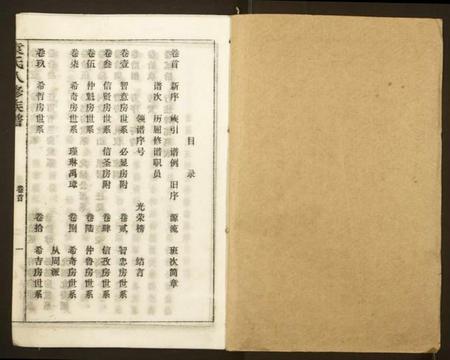 目录
卷首 新序 族引 谱例 旧序 源流 班次简章
谱次 历届修谱职员
领谱序号 光荣榜 结言
卷壹 智意房世系 必显房附 卷贰 智忠房世系
卷叁 信贤房世系 信圣房附 卷肆 信孜房世系
卷伍 仲魁房世系 卷陆 仲鲁房世系
卷柒 希奇房世系 瑾琳禹璋 卷捌 希奇房世系
从周派
卷玖 希哲房世系 卷拾 希吉房世系
袁氏八修族谱 卷首 一